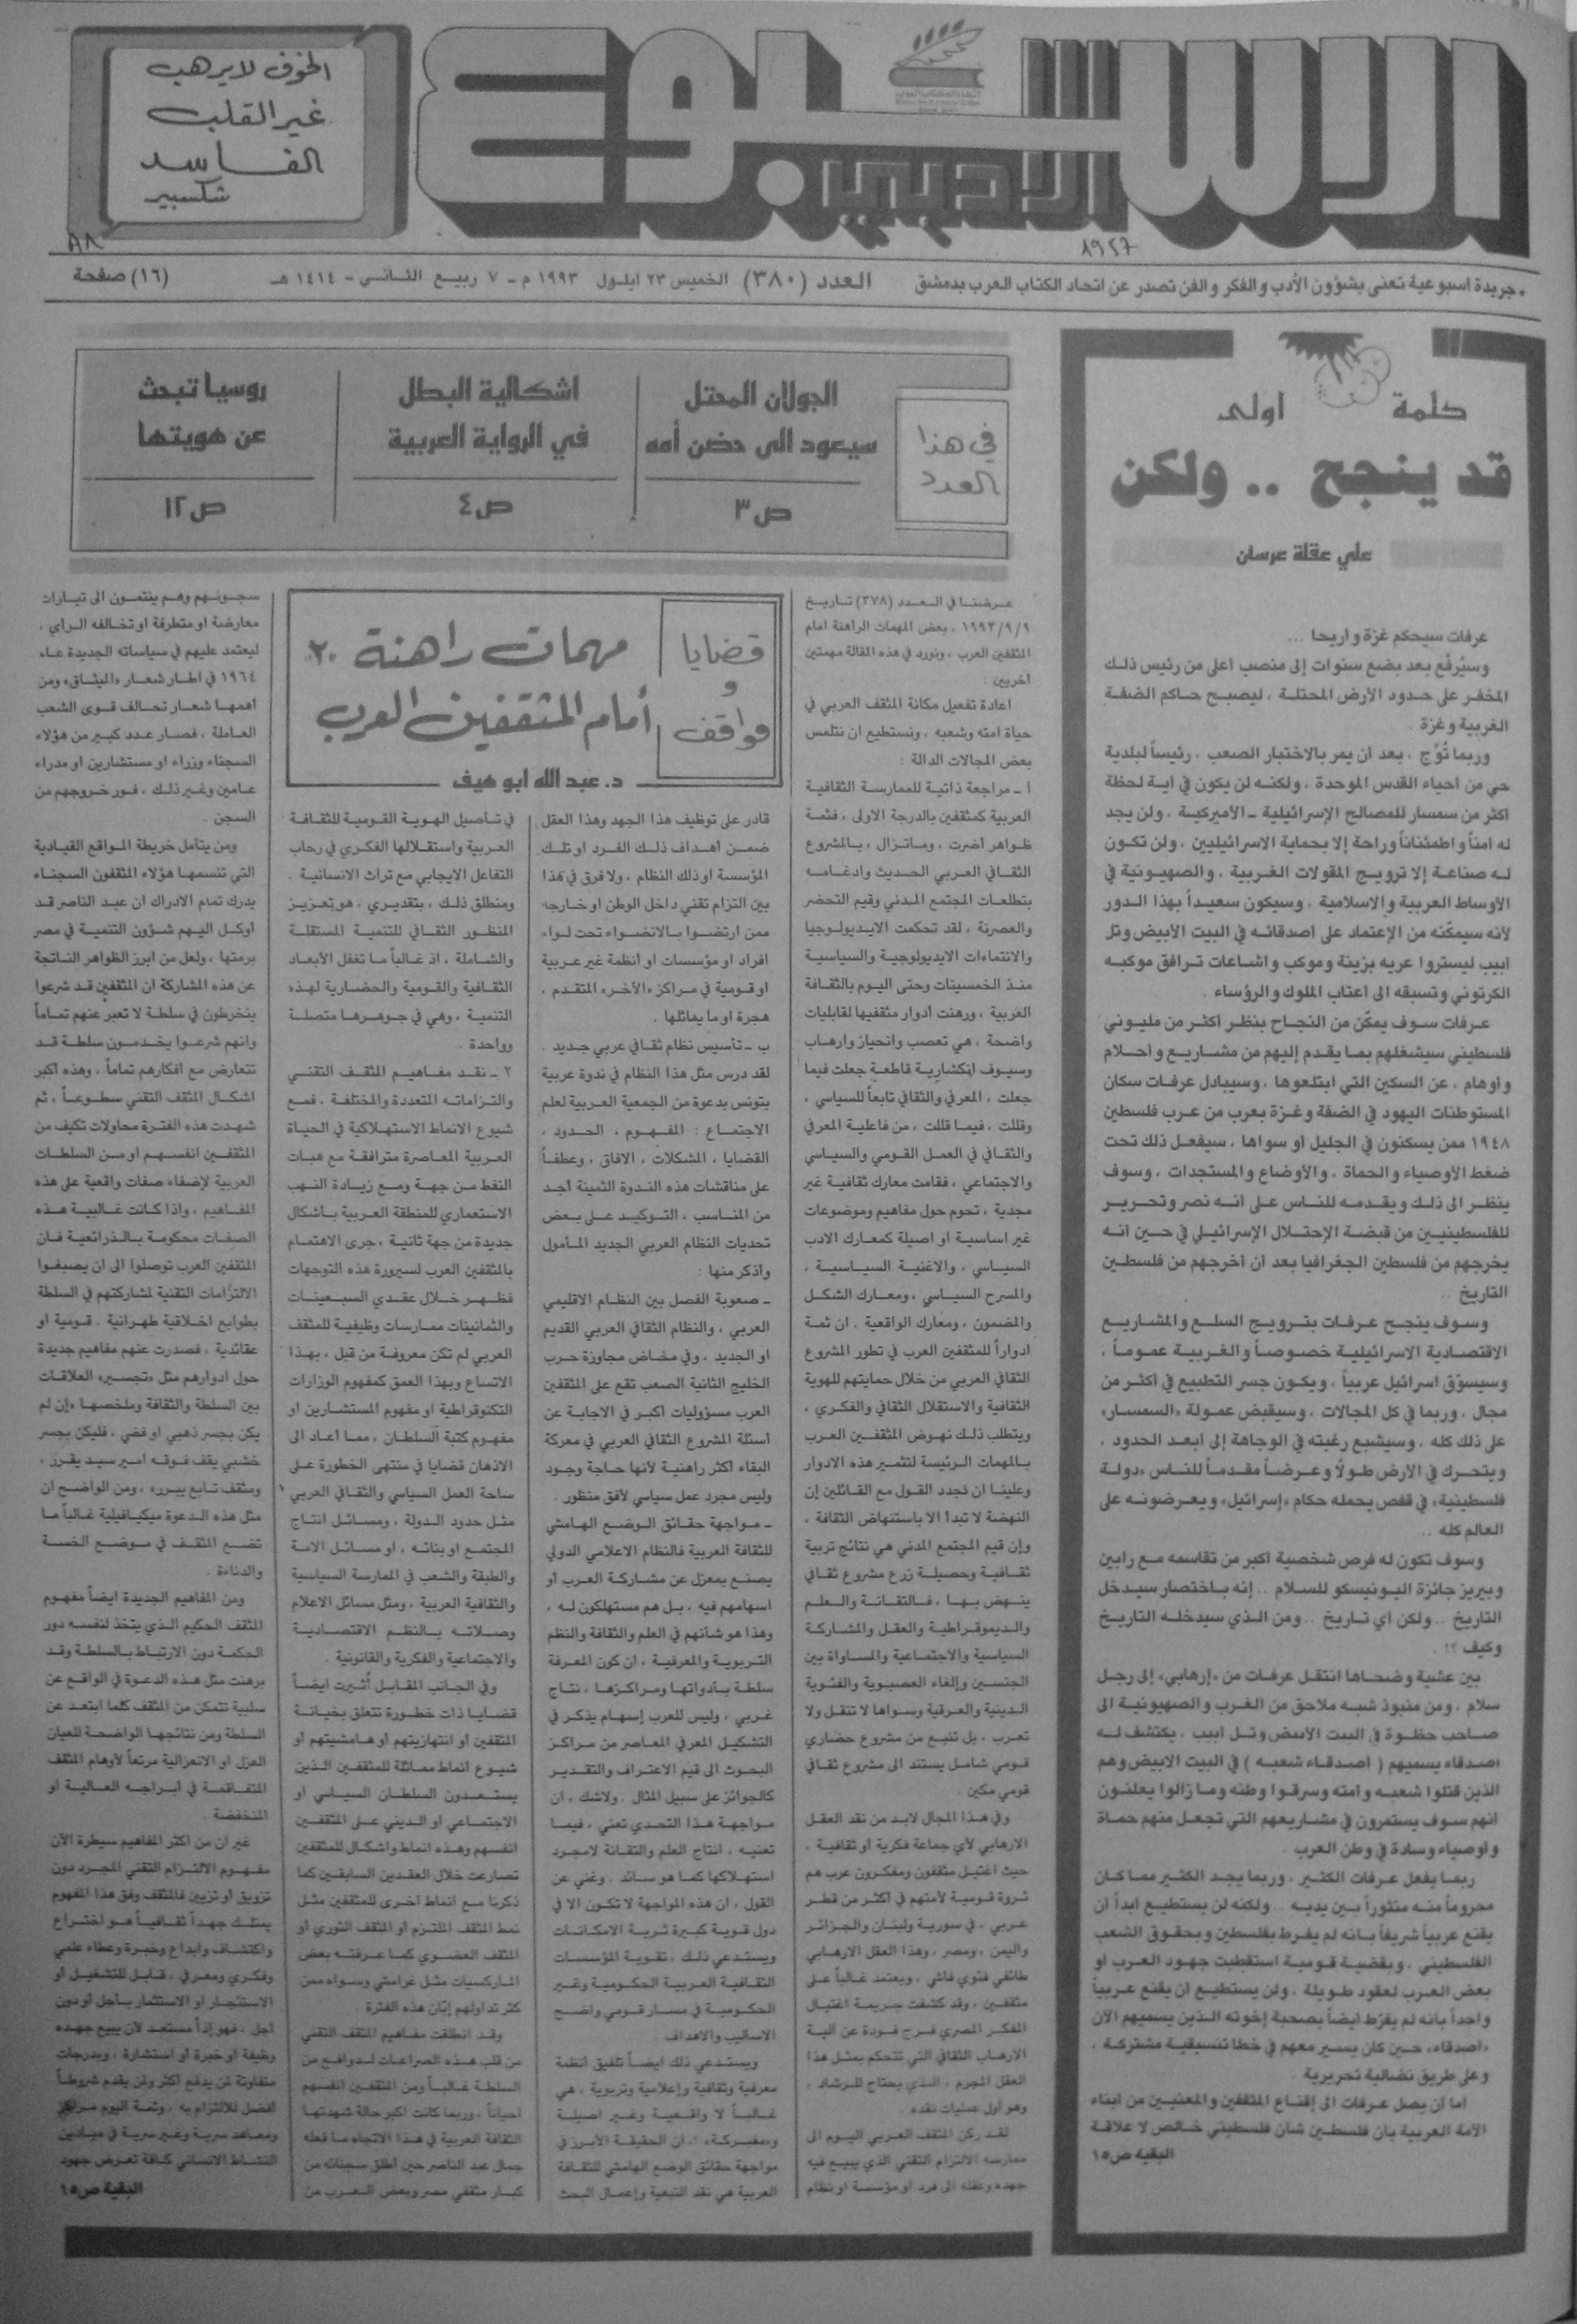 الخوف لا يرهب
غير القلب
الفاسد
شكسبير
الاسبوع
الأدبي
٠ جريدة أسبوعية تعنى بشؤون الأدب والفكر والفن تصدر عن اتحاد الكتاب العرب بدمشق
العدد (٣٨٠) الخميس ٢٣ ايلول ١٩٩٣ م - ٧ ربيع الثاني - ١٤١٤ هـ
(١٦) صفحة
في هذا
العدد
الجولان المحتل
سيعود الى حضن أمه
ص ٣
اشكالية البطل
في الرواية العربية
ص ٤
روسيا تبحث
عن هويتها
ص ١٢
كلمة اولى
قد ينجح .. ولكن
علي عقلة عرسان
عرفات سيحكم غزة واريحا ...
وسيُرفّع بعد بضع سنوات إلى منصب اعلى من رئيس ذلك
المخفر على حدود الارض المحتلة ، ليصبح حاكم الضفة
الغربية وغزة .
وربما تُوّج ، بعد أن يمر بالاختبار الصعب ، رئيساً لبلدية
حي من احياء القدس الموحدة ، ولكنه لن يكون في اية لحظة
اكثر من سمسار للمصالح الإسرائيلية ـ الأميركية ، ولن يجد
له امناً واطمئناناً وراحة إلا بحماية الاسرائيليين ، ولن تكون
له صناعة إلا ترويج المقولات الغربية ، والصهيونية في
الأوساط العربية والاسلامية ، وسيكون سعيداً بهذا الدور
لأنه سيمكّنه من الإعتماد على أصدقائه في البيت الأبيض وتل
ابيب ليستروا عريه بزينة وموكب واشاعات ترافق موكبه
الكرتوني وتسبقه الى اعتاب الملوك والرؤساء .
عرفات سوف يمكّن من النجاح بنظر اكثر من مليوني
فلسطيني سيشغلهم بما يقدم إليهم من مشاريع واحلام
واوهام ، عن السكين التي ابتلعوها ، وسيبادل عرفات سكان
المستوطنات اليهود في الضفة وغزة بعرب من عرب فلسطين
١٩٤٨ ممن يسكنون في الجليل أو سواها ، سيفعل ذلك تحت
ضغط الأوصياء والحماة ، والأوضاع والمستجدات ، وسوف
ينظر الى ذلك ويقدمه للناس على انه نصر وتحرير
للفلسطينيين من قبضة الإحتلال الإسرائيلي في حين أنه
يخرجهم من فلسطين الجغرافيا بعد أن أخرجهم من فلسطين
التاريخ ..
وسوف ينجح عرفات بترويج السلع والمشاريع
الاقتصادية الاسرائيلية خصوصاً والغربية عموماً ،
وسيسوّق اسرائيل عربياً ، ويكون جسر التطبيع في اكثر من
مجال ، وربما في كل المجالات ، وسيقبض عمولة «السمسار»
على ذلك كله ، وسيشبع رغبته في الوجاهة إلى ابعد الحدود ،
ويتحرك في الارض طولًا وعرضاً مقدماً للناس «دولة
فلسطينية» في قفص يحمله حكام «إسرائيل» ويعرضونه على
العالم كله ..
وسوف تكون له فرص شخصية اكبر من تقاسمه مع رابين
وبيريز جائزة اليونيسكو للسلام .. إنه باختصار سيدخل
التاريخ .. ولكن أي تاريخ .. ومن الذي سيدخله التاريخ
وكيف ؟! .
بين عشية وضحاها انتقل عرفات من «إرهابي» إلى رجل
سلام ، ومن منبوذ شبه ملاحق من الغرب والصهيونية الى
صاحب حظوة في البيت الابيض وتل ابيب . يكتشف له
اصدقاء يسميهم ( اصدقاء شعبه ) في البيت الابيض وهم
الذين قتلوا شعبه وامته وسرقوا وطنه وما زالوا يعلنون
انهم سوف يستمرون في مشاريعهم التي تجعل منهم حماة
واوصياء وسادة في وطن العرب .
ربما يفعل عرفات الكثير ، وربما يجد الكثير مما كان
محروماً منه منثوراً بين يديه .. ولكنه لن يستطيع ابداً أن
يقنع عربياً شريفاً بانه لم يفرط بفلسطين وبحقوق الشعب
الفلسطيني ، وبقضية قومية استقطبت جهود العرب او
بعض العرب لعقود طويلة ، ولن يستطيع ان يقنع عربياً
واحداً بانه لم يفرّط ايضاً بصحبة إخوته الذين يسميهم الآن
«اصدقاء» حين كان يسير معهم في خطا تنسيقية مشتركة ،
وعلى طريق نضالية تحريرية .
اما أن يصل عرفات الى إقناع المثقفين والمعنيين من ابناء
الأمة العربية بان فلسطين شان فلسطيني خالص لا علاقة
البقية ص ١٥
قضايا
و
مواقف
مهمات راهنة ٢٠
أمام المثقفين العرب
د. عبد الله ابو هيف
عرضنا في العدد (٣٧٨) تاريخ
١٩٩٣/٩/٩ ، بعض المهمات الراهنة امام
المثقفين العرب ، ونورد في هذه المقالة مهمتين
أخريين :
اعادة تفعيل مكانة المثقف العربي في
حياة امته وشعبه ، ونستطيع ان نتلمس
بعض المجالات الدالة :
أ ـ مراجعة ذاتية للممارسة الثقافية
العربية كمثقفين بالدرجة الاولى ، فثمة
ظواهر أضرت ، وماتزال ، بالمشروع
الثقافي العربي الحديث وادغامه
بتطلعات المجتمع المدني وقيم التحضر
والعصرنة ، لقد تحكمت الايديولوجيا
والانتماءات الايديولوجية والسياسية
منذ الخمسينات وحتى اليوم بالثقافة
العربية ، ورهنت أدوار مثقفيها لقابليات
واضحة ، هي تعصب وانحياز وارهاب
وسيوف انكشارية قاطعة جعلت فيما
جعلت ، المعرفي والثقافي تابعاً للسياسي ،
وقللت ، فيما قللت ، من فاعلية المعرفي
والثقافي في العمل القومي والسياسي
والاجتماعي ، فقامت معارك ثقافية غير
مجدية ، تحوم حول مفاهيم وموضوعات
غير اساسية او اصيلة كمعارك الادب
السياسي ، والاغنية السياسية ،
والمسرح السياسي ، ومعارك الشكل
والمضمون ، ومعارك الواقعية . ان ثمة
ادواراً للمثقفين العرب في تطور المشروع
الثقافي العربي من خلال حمايتهم للهوية
الثقافية والاستقلال الثقافي والفكري ،
ويتطلب ذلك نهوض المثقفين العرب
بالمهمات الرئيسة لتثمير هذه الادوار
وعلينا ان نجدد القول مع القائلين إن
النهضة لا تبدأ الا باستنهاض الثقافة ،
وإن قيم المجتمع المدني هي نتائج تربية
ثقافية وحصيلة زرع مشروع ثقافي
ينهض بها ، فالتقانة والعلم
والديموقراطية والعقل والمشاركة
السياسية والاجتماعية والمساواة بين
الجنسين وإلغاء العصبوية والفئوية
الدينية والعرقية وسواها لا تنقل ولا
تعرب ، بل تنبع من مشروع حضاري
قومي شامل يستند الى مشروع ثقافي
قومي مكين .
وفي هذا المجال لابد من نقد العقل
الارهابي لأي جماعة فكرية أو ثقافية ،
حيث اغتيل مثقفون ومفكرون عرب هم
ثروة قومية لأمتهم في اكثر من قطر
عربي ، في سورية ولبنان والجزائر
واليمن ، ومصر ، وهذا العقل الارهابي
طائفي فئوي فاشي ، ويعتمد غالباً على
مثقفين ، وقد كشفت جريمة اغتيال
المفكر المصري فرج فودة عن آلية
الارهاب الثقافي التي تتحكم بمثل هذا
العقل المجرم ، الذي يحتاج للرشاد ،
وهو أول عمليات نقده .
لقد ركن المثقف العربي اليوم الى
ممارسة الالتزام التقني الذي يبيع فيه
جهده وعقله الى فرد او مؤسسة او نظام
قادر على توظيف هذا الجهد وهذا العقل
ضمن أهداف ذلك الفرد او تلك
المؤسسة او ذلك النظام ، ولا فرق في هذا
بين التزام تقني داخل الوطن او خارجه
ممن ارتضوا بالانضواء تحت لواء
افراد او مؤسسات او انظمة غير عربية
او قومية في مراكز «الآخر» المتقدم ،
هجرة او ما يماثلها .
ب ـ تأسيس نظام ثقافي عربي جديد .
لقد درس مثل هذا النظام في ندوة عربية
بتونس بدعوة من الجمعية العربية لعلم
الاجتماع : المفهوم ، الحدود ،
القضايا ، المشكلات ، الافاق ، وعطفاً
على مناقشات هذه الندوة الثمينة أجد
من المناسب ، التوكيد على بعض
تحديات النظام العربي الجديد المأمول
واذكر منها :
ـ صعوبة الفصل بين النظام الاقليمي
العربي ، والنظام الثقافي العربي القديم
او الجديد ، وفي مخاض مجاوزة حرب
الخليج الثانية الصعب تقع على المثقفين
العرب مسؤوليات اكبر في الاجابة عن
أسئلة المشروع الثقافي العربي في معركة
البقاء اكثر راهنية لأنها حاجة وجود
وليس مجرد عمل سياسي لأفق منظور .
ـ مواجهة حقائق الوضع الهامشي
للثقافة العربية فالنظام الاعلامي الدولي
يصنع بمعزل عن مشاركة العرب أو
اسهامهم فيه ، بل هم مستهلكون له ،
وهذا هو شأنهم في العلم والثقافة والنظم
التربوية والمعرفية ، ان كون المعرفة
سلطة بأدواتها ومراكزها ، نتاج
غربي ، وليس للعرب إسهام يذكر في
التشكيل المعرفي المعاصر من مراكز
البحوث الى قيم الاعتراف والتقدير
كالجوائز على سبيل المثال . ولاشك ، ان
مواجهة هذا التحدي تعني ، فيما
تعنيه ، انتاج العلم والتقانة لامجرد
استهلاكها كما هو سائد . وغني عن
القول ، ان هذه المواجهة لا تكون الا في
دول قوية كبيرة ثرية الامكانات
ويستدعي ذلك ، تقوية المؤسسات
الثقافية العربية الحكومية وغير
الحكومية في مسار قومي واضح
الاساليب والاهداف .
ويستدعي ذلك ايضاً تلفيق انظمة
معرفية وثقافية وإعلامية وتربوية ، هي
غالباً لا واقعية وغير اصيلة
و«مفبركة» . ان الحقيقة الأبرز في
مواجهة حقائق الوضع الهامشي للثقافة
العربية هي نقد التبعية وإعمال البحث
في تأصيل الهوية القومية للثقافة
العربية واستقلالها الفكري في رحاب
التفاعل الايجابي مع تراث الانسانية .
ومنطلق ذلك ، بتقديري ، هو تعزيز
المنظور الثقافي للتنمية المستقلة
والشاملة ، اذ غالباً ما تغفل الأبعاد
الثقافية والقومية والحضارية لهذه
التنمية ، وهي في جوهرها متصلة
وواحدة .
٢ ـ نقد مفاهيم المثقف التقني
والتزاماته المتعددة والمختلفة . فمع
شيوع الانماط الاستهلاكية في الحياة
العربية المعاصرة مترافقة مع هبات
النفط من جهة ومع زيادة النهب
الاستعماري للمنطقة العربية بأشكال
جديدة من جهة ثانية ، جرى الاهتمام
بالمثقفين العرب لسيرورة هذه التوجهات
فظهر خلال عقدي السبعينات
والثمانينات ممارسات وظيفية للمثقف
العربي لم تكن معروفة من قبل ، بهذا
الاتساع وبهذا العمق كمفهوم الوزارات
التكنوقراطية او مفهوم المستشارين او
مفهوم كتبة السلطان ، مما أعاد الى
الاذهان قضايا في منتهى الخطورة على
ساحة العمل السياسي والثقافي العربي
مثل حدود الدولة ، ومسائل انتاج
المجتمع او بنائه ، او مسائل الامة
والطبقة والشعب في الممارسة السياسية
والثقافية العربية ، ومثل مسائل الاعلام
وصلاته بالنظم الاقتصادية
والاجتماعية والفكرية والقانونية .
وفي الجانب المقابل أثيرت ايضاً
قضايا ذات خطورة تتعلق بخيانة
المثقفين أو انتهازيتهم أو هامشيتهم أو
شيوع انماط مماثلة للمثقفين الذين
يستعدون السلطان السياسي او
الاجتماعي او الديني على المثقفين
انفسهم وهذه انماط واشكال للمثقفين
تصارعت خلال العقدين السابقين كما
ذكرنا مع انماط اخرى للمثقفين مثل
نمط المثقف الملتزم أو المثقف الثوري او
المثقف العضوي كما عرفته بعض
الماركسيات مثل غرامشي وسواه ممن
كثر تداولهم إبّان هذه الفترة .
وقد انطلقت مفاهيم المثقف التقني
من قلب هذه الصراعات لدوافع من
السلطة غالباً ومن المثقفين انفسهم
احياناً ، وربما كانت اكبر حالة شهدتها
الثقافة العربية في هذا الاتجاه ما فعله
جمال عبد الناصر حين أطلق سجنائه من
كبار مثقفي مصر وبعض العرب من
سجونهم وهم ينتمون الى تيارات
معارضة او متطرفة او تخالفه الراي ،
ليعتمد عليهم في سياساته الجديدة عام
١٩٦٤ في اطار شعار «الميثاق» ومن
أهمها شعار تحالف قوى الشعب
العاملة ، فصار عدد كبير من هؤلاء
السجناء وزراء او مستشارين او مدراء
عامين وغير ذلك ، فور خروجهم من
السجن .
ومن يتأمل خريطة المواقع القيادية
التي تنسمها هؤلاء المثقفون السجناء
يدرك تمام الادراك ان عبد الناصر قد
أوكل اليهم شؤون التنمية في مصر
برمتها ، ولعل من ابرز الظواهر الناتجة
عن هذه المشاركة ان المثقفين قد شرعوا
ينخرطون في سلطة لا تعبر عنهم تماماً
وانهم شرعوا يخدمون سلطة قد
تتعارض مع أفكارهم تماماً ، وهذه اكبر
اشكال المثقف التقني سطوعاً ، ثم
شهدت هذه الفترة محاولات تكيف من
المثقفين انفسهم او من السلطات
العربية لإضفاء صفات واقعية على هذه
المفاهيم ، واذا كانت غالبية هذه
الصفات محكومة بالذرائعية فان
المثقفين العرب توصلوا الى ان يصبغوا
الالتزامات التقنية لمشاركتهم في السلطة
بطوابع اخلاقية طهرانية ، قومية او
عقائدية ، فصدرت عنهم مفاهيم جديدة
حول ادوارهم مثل «تجسير» العلاقات
بين السلطة والثقافة وملخصها «إن لم
يكن بجسر ذهبي او فضي ، فليكن بجسر
خشبي يقف فوقه امير سيد يقرر ،
ومثقف تابع يبرر» ، ومن الواضح ان
مثل هذه الدعوة ميكيافيلية غالباً ما
تضع المثقف في موضع الخسة
والدناءة .
ومن المفاهيم الجديدة ايضاً مفهوم
المثقف الحكيم الذي يتخذ لنفسه دور
الحكمة دون الارتباط بالسلطة وقد
برهنت مثل هذه الدعوة في الواقع عن
سلبية تتمكن من المثقف كلما ابتعد عن
السلطة ومن نتائجها الواضحة للعيان
العزل او الانعزالية مرتعاً لأوهام المثقف
المتفاقمة في ابراجه العالية او
المنخفضة .
غير ان من اكثر المفاهيم سيطرة الآن
مفهوم الالتزام التقني المجرد دون
تزويق أو تزيين فالمثقف وفق هذا المفهوم
يمتلك جهداً ثقافياً هو اختراع
واكتشاف وابداع وخبرة وعطاء علمي
وفكري ومعرفي ، قابل للتشغيل او
الاستئجار او الاستثمار بأجل أو دون
أجل ، فهو إذاً مستعد لأن يبيع جهده
وظيفة او خبرة او استشارة ، وبدرجات
متفاوتة لمن يدفع اكثر ولمن يقدم شروطاً
أفضل للالتزام به ، وثمة اليوم مراكز
ومعاهد سرية وغير سرية في ميادين
النشاط الانساني كافة تعرض جهود
البقية ص ١٥